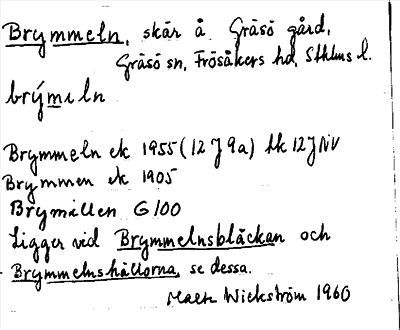 Brymmeln, skär å Gräsö gård,
Gräsö sn, Frösåkers hd, Sthlms l.
brýmeln
Brymmeln ek 1955 (12 J 9a) tk 12 J NV
Brymmen ek 1905
Brymällen G 100
Ligger vid Brymmelnsbläckan och
Brymmelnshällorna, se dessa.
Mats Wickström 1960